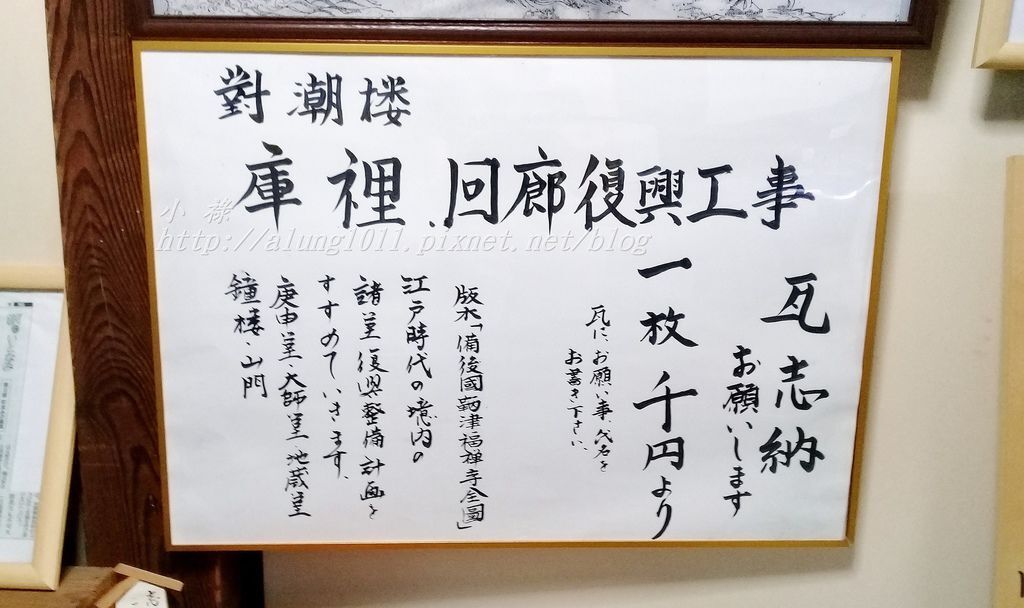 對潮楼
庫裡、回廊復興工事
瓦志納
お願いします
一枚千円より
瓦に、お願い事、氏名を
お書き下さい。
版木「備後國鞆津福禅寺全圖」
江戸時代の境内の
諸堂復興整備計画を
すすめていきます。
庚申堂・大師堂 地蔵堂
鐘楼・山門
小 祿
http://alung1011.pixnet.net/blog